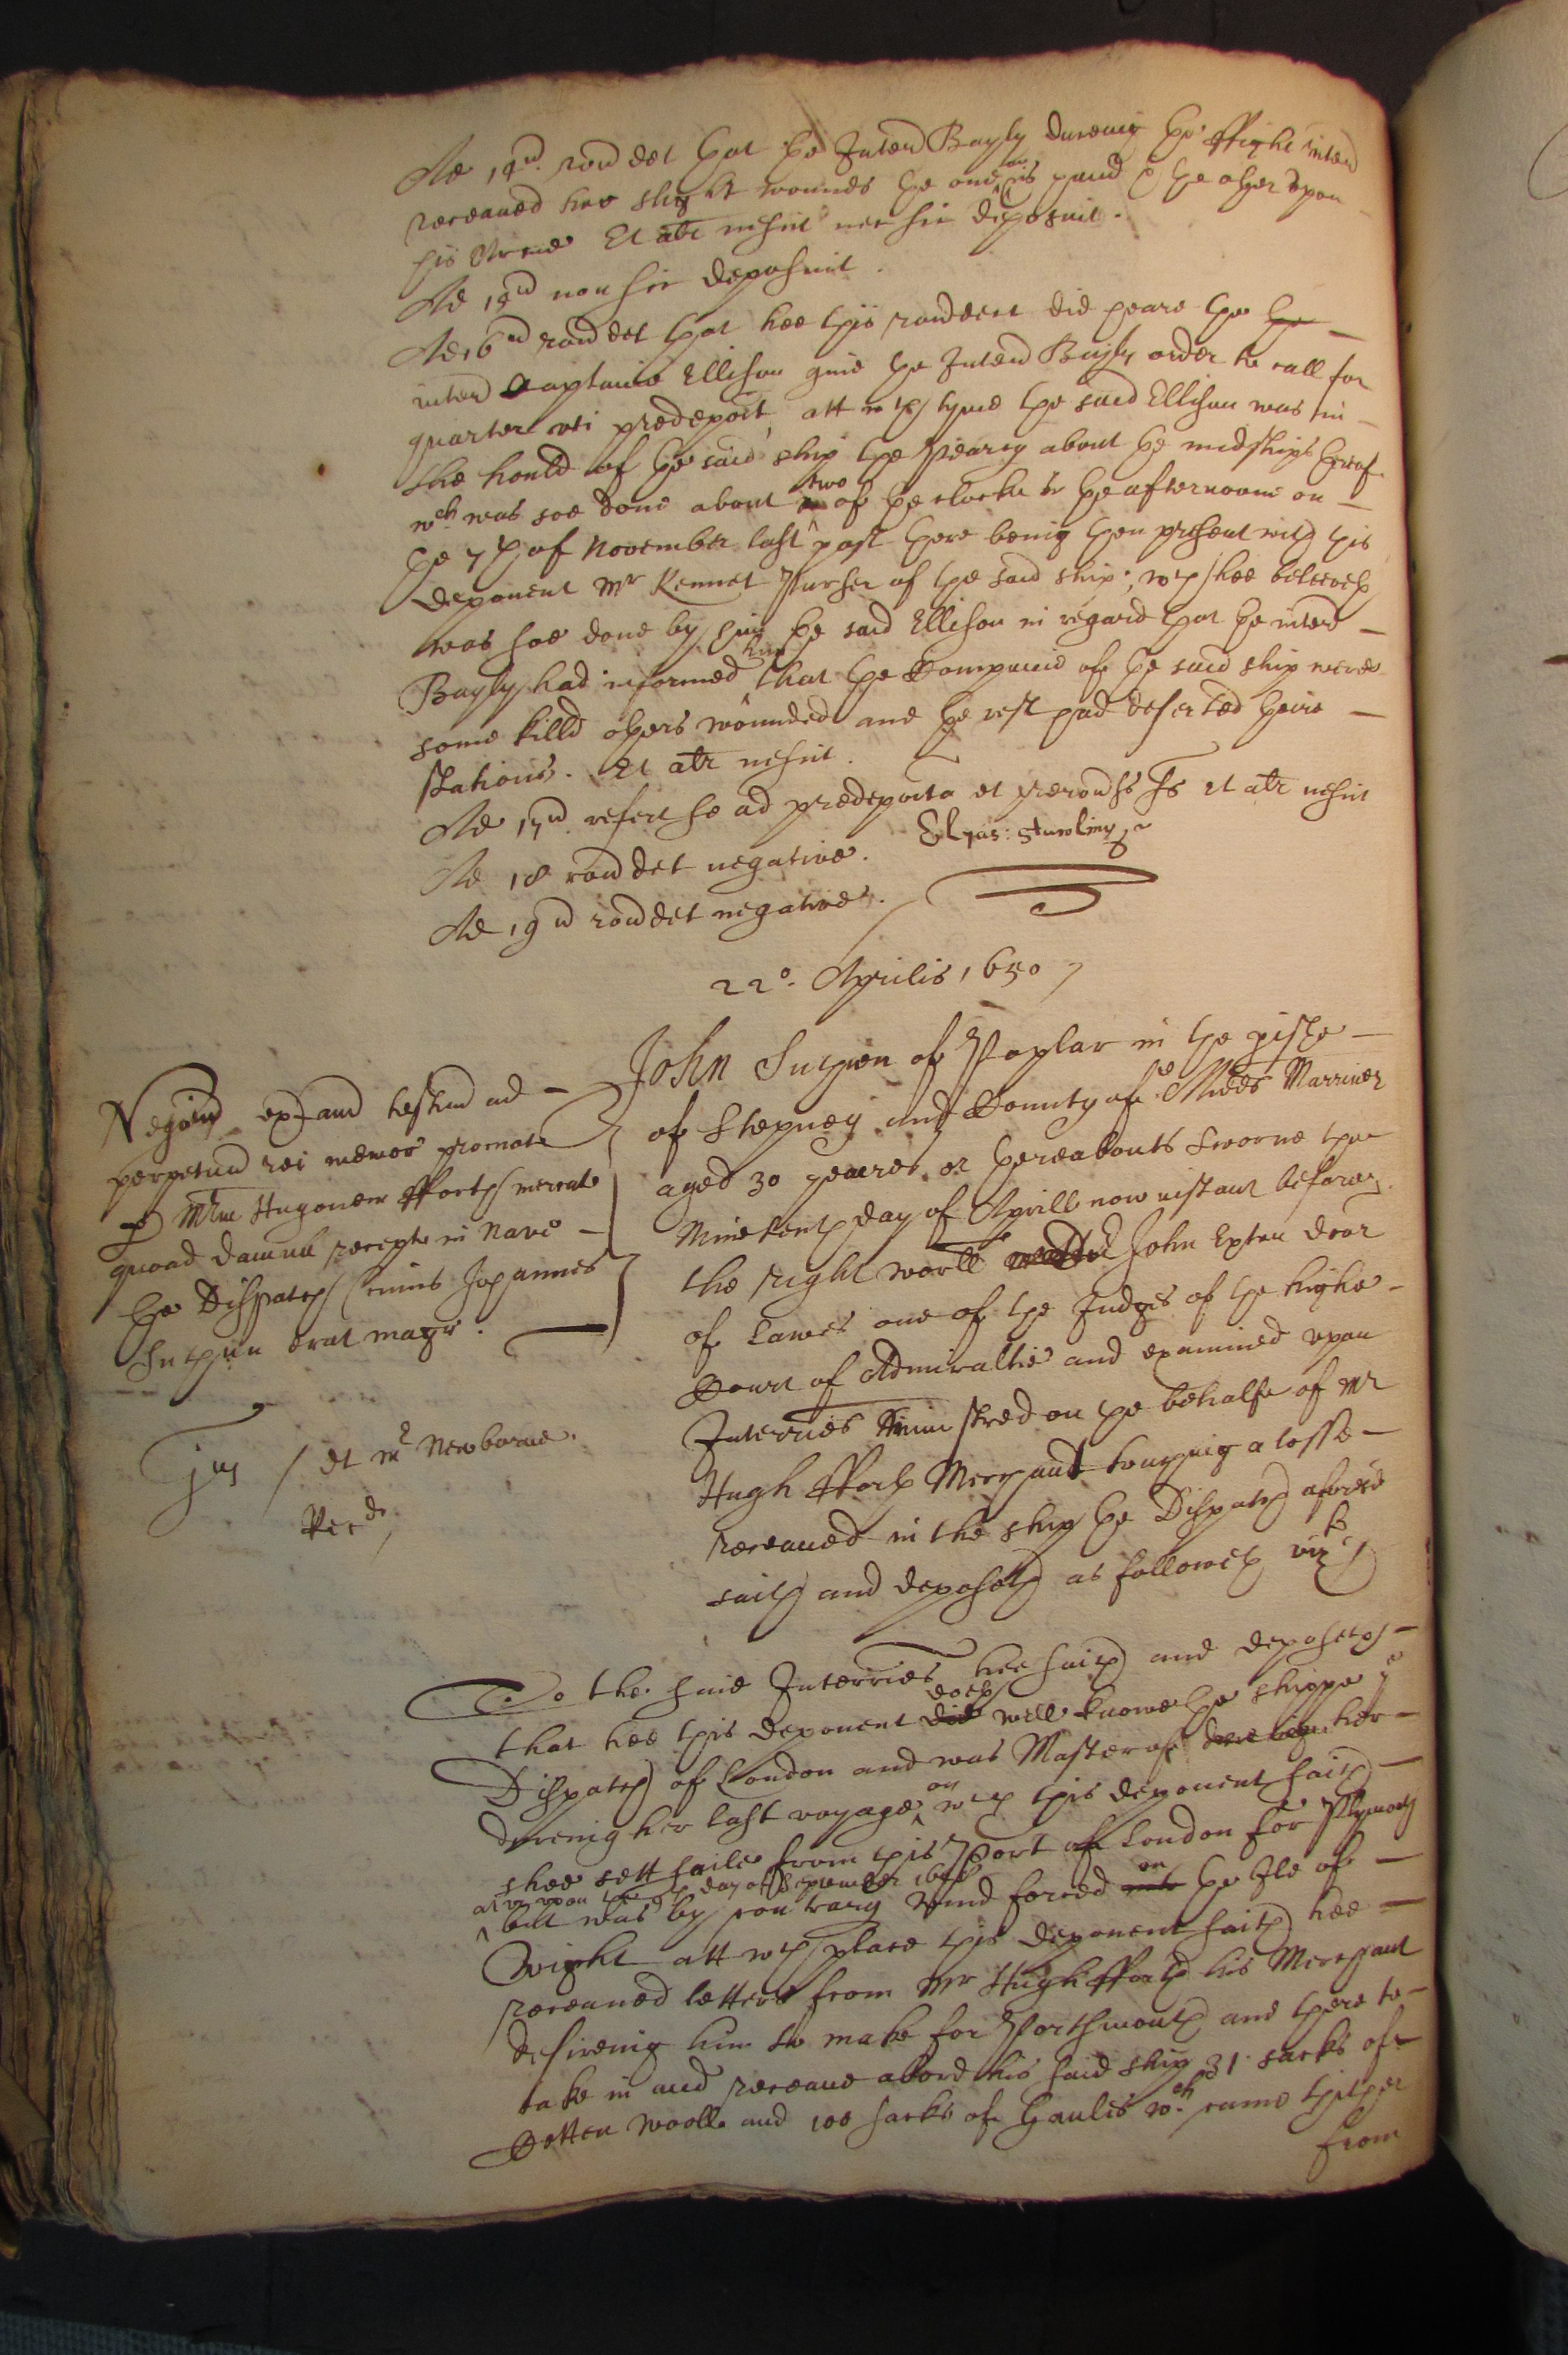 Ad 14um. rendet that the Interr Bayly dureing the ffight interr
receaued two slight wounds the one on his hand & the other vpon
his Arme Et alr nescit nec scit deposuit.
Ad 15um non scit deposuit.
Ad 16um rendet that hee this rendent did heare the the
interr Captaine Ellison giue the Interr Bayly order to call for
quarter vti prædeposit, att wch tyme the said Ellison was in
the hould of the said ship the Pearcy about the midships thereof
wch was soe done about two of the clocke in the afternoone on
the 7th of November last past there being then present with this
deponent Mr Kennet Purser of the said ship; wch hee beleeveth
was soe done by him the said Ellison in regard that the interr
Bayly had informed him that the Companie of the said ship were
some killd others wounded and the rest had deserted theire
stations. Et alr nescit.
Ad 17um. refert se ad prædeposita et Et alr nescit
Ad 18 rendet negative. Elyas: Sturling
Ad 19um rendet negative.
22o. Aprilis 1650
Negotiu exaand testiu ad
perpetua rei memor promot
p Mrm Hugonem fforth mercate
quoad damnu recepte in nave
the Dispatch cuius Johannes
Suchin erat magr.
jus / dt mr Newborne.
Recd
John Suchen of Poplar in the pishe
of Stepney and County of Midds Marriner
aged 30 yeares or thereabouts sworne the
Nineteenth day of Aprill now instant before
the right worll John Exton door
of Lawes one of the Judges of the highe
Court of Admiraltie and examined vpon
Interries ministred on the behalfe of Mr
Hugh fforth Merchant touching a losse
receaued in the ship the Dispatch aforesd
saith and deposeth as followeth vizt
To the said Interries hee saith and deposeth
that hee this deponent did doeth well knowe the shippe ye
Dispatch of London and was Master of her
dureing her last voyage on wch this deponent saith
shee sett saile from this Port of London for Plymoth
vpon the day of September 164
but was by contrary wind forced on the Ile of
Wight att wch place this deponent saith hee
receaued letters from Mr Hugh fforth his Merchant
desireing him to make for Portsmouth and there to
take in and receaue abord his said ship 31 sacks of
Cotten wooll and 100 sacks of Gaules wch came thither
from